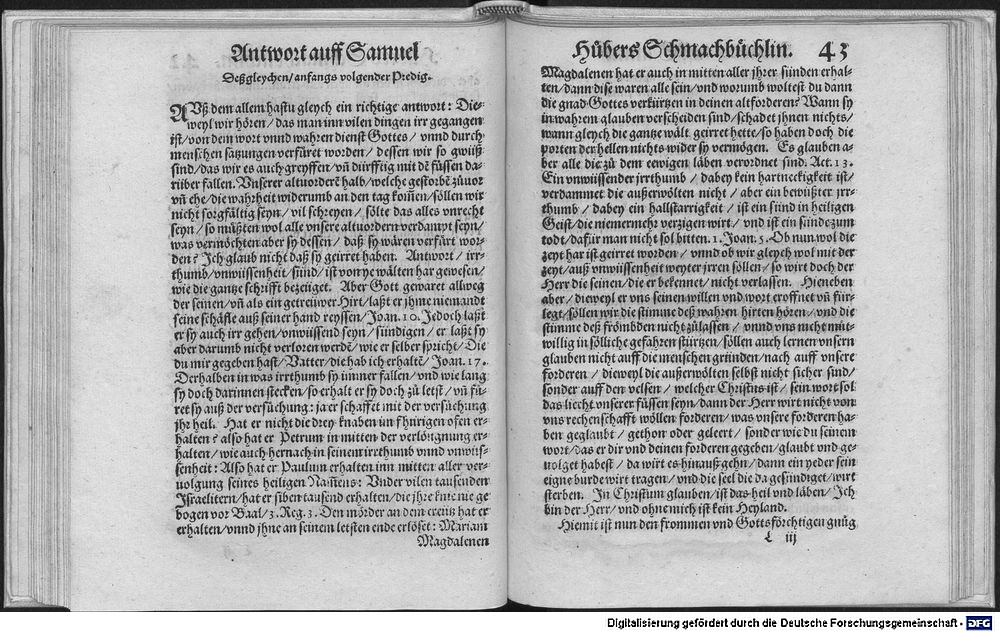 Antwort auff Samuel
Deßgleychen/ anfangs volgender Predig.
AVß dem allem hastu gleych ein richtige antwort: Die-
weyl wir hören/ das man inn vilen dingen irr gegangen
ist/ von dem wort vnnd wahren dienst Gottes/ vnnd durch
menschen satzungen verfüret worden/ dessen wir so gwüß
sind/ das wir es auch greyffen/ vñ dürfftig mit dē füssen da-
rüber fallen. Vnserer altuorderē halb/ welche gestorbē zůuor
vñ ehe/ die wahrheit widerumb an den tag kom̃en/ söllen wir
nicht sorgfältig seyn/ vil schreyen/ sölte das alles vnrecht
seyn/ so můßten wol alle vnsere altuordern verdampt seyn/
was vermöchten aber sy dessen/ daß sy wären verfürt wor-
den? Ich glaub nicht daß sy geirret haben. Antwort/ irr-
thumb/ vnwüssenheit/ sünd/ ist von ye wälten har gewesen/
wie die gantze schrifft bezeüget. Aber Gott gewaret allweg
der seinen/ vñ als ein getreüwer Hirt/ laßt er jhme niemandt
seine schäfle auß seiner hand reyssen/ Joan. 10. Jedoch laßt
er sy auch irr gehen/ vnwüssend seyn/ sündigen/ er laßt sy
aber darumb nicht verloren werdē/ wie er selber spricht/ Die
du mir gegeben hast/ Vatter/ die hab ich erhaltē/ Joan. 17.
Derhalben in was irrthumb sy immer fallen/ vnd wie lang
sy doch darinnen stecken/ so erhalt er sy doch zů letst/ vñ fü-
ret sy auß der versůchung: ja er schaffet mit der versůchung
jhr heil. Hat er nicht die drey knaben im fhürigen ofen er-
halten? also hat er Petrum in mitten der verlöugnung er-
halten/ wie auch hernach in seinem irrthumb vnnd vnwüs-
senheit: Also hat er Paulum erhalten inn mitten aller ver-
uolgung seines heiligen Nam̃ens: Vnder vilen tausenden
Israelitern/ hat er siben tausend erhalten/ die jhre knie nie ge
bogen vor Baal/ 3. Reg. 3. Den mörder an dem creütz hat er
erhalten/ vnnd jhne an seinem letsten ende erlöset: Mariam
Magdalenen
Hůbers Schmachbüchlin. 43
Magdalenen hat er auch in mitten aller jhrer sünden erhal-
ten/ dann dise waren alle sein/ vnd worumb woltest du dann
die gnad Gottes verkürtzen in deinen altforderen? Wann sy
in wahrem glauben verscheiden sind/ schadet jhnen nichts/
wann gleych die gantze wält geirret hette/ so haben doch die
porten der hellen nichts wider sy vermögen. Es glauben a-
ber alle die zů dem eewigen läben verordnet sind. Act. 13.
Ein vnwüssender jrrthumb/ dabey kein hartneckigkeit ist/
verdammet die außerwölten nicht/ aber ein bewüßter jrr-
thumb/ dabey ein hallstarrigkeit/ ist ein sünd in heiligen
Geist/ die niemermehr verzigen wirt/ vnd ist ein sünde zum
todt/ dafür man nicht sol bitten. 1. Joan. 5. Ob nun wol die
zeyt har ist geirret worden/ vnnd ob wir gleych wol mit der
zeyt/ auß vnwüssenheit weyter jrren söllen/ so wirt doch der
Herr die seinen/ die er bekennet/ nicht verlassen. Hieneben
aber/ dieweyl er vns seinen willen vnd wort eroffnet vñ für-
legt/ söllen wir die stimme deß wahren hirten hören/ vnd die
stimme deß frömbden nicht zůlassen/ vnnd vns nicht můt-
willig in sölliche gefahren stürtzen/ söllen auch lernen vnsern
glauben nicht auff die menschen gründen/ nach auff vnsere
forderen/ dieweyl die außerwölten selbst nicht sicher sind/
sonder auff den velsen/ welcher Christus ist/ sein wort sol
das liecht vnserer füssen seyn/ dann der Herr wirt nicht von
vns rechenschafft wöllen forderen/ was vnsere forderen ha-
ben geglaubt/ gethon oder geleert/ sonder wie du seinem
wort/ das er dir vnd deinen forderen gegeben/ glaubt vnd ge-
uolget habest/ da wirt es hinauß gehn/ dann ein yeder sein
eigne burde wirt tragen/ vnd die seel die da gesündiget/ wirt
sterben. In Christum glauben/ ist das heil vnd läben/ Ich
bin der Herr/ vnd ohne mich ist kein Heyland.
Hiemit ist nun den frommen vnd Gottsförchtigen gnůg
L iij
Digitalisierung gefördert durch die Deutsche Forschungsgemeinschaft - DFG